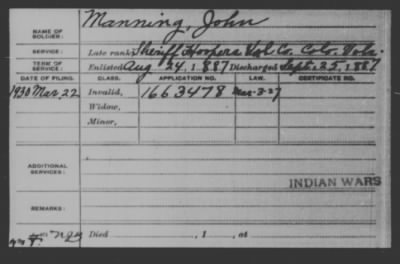 NAME OF SOLDIER: Manning, John
SERVICE: Late rank, Sheriff Hoopers Vol Co. Colo. Vols.
TERM OF SERVICE: Enlisted Aug. 24, 1887 Discharged Sept. 25, 1887
DATE OF FILING. CLASS. APPLICATION NO. LAW. CERTIFICATE NO.
1930 Mar. 22 Invalid, 1663478 Mar-3-27
Widow,
Minor,
ADDITIONAL SERVICES:
INDIAN WARS
REMARKS:
Died , 1 , at